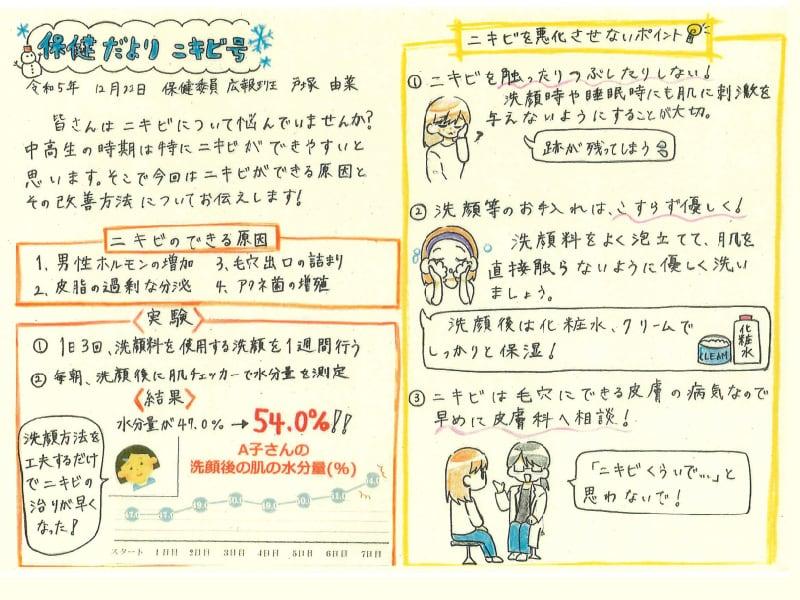 保健だより ニキビ号
令和5年 12月22日 保健委員 広報班 戸塚 由菜
皆さんはニキビについて悩んでいませんか?
中高生の時期は特にニキビができやすいと
思います。そこで今回はニキビができる原因と
その改善方法についてお伝えします!
ニキビのできる原因
1、男性ホルモンの増加 3、毛穴出口の詰まり
2、皮脂の過剰な分泌 4、アクネ菌の増殖
〈実験〉
① 1日3回、洗顔料を使用する洗顔を1週間行う
② 毎朝、洗顔後に肌チェッカーで水分量を測定
〈結果〉
水分量が47.0% → 54.0%!!
洗顔方法を
工夫するだけ
でニキビの
治りが早く
なった!
A子さんの
洗顔後の肌の水分量(%)
47.0 47.0 49.0 50.0 49.0 50.0 51.0 54.0
スタート 1日目 2日目 3日目 4日目 5日目 6日目 7日目
ニキビを悪化させないポイント
① ニキビを触ったりつぶしたりしない!
洗顔時や睡眠時にも肌に刺激を
与えないようにすることが大切。
跡が残ってしまう
② 洗顔等のお手入れは、こすらず優しく!
洗顔料をよく泡立てて、肌を
直接触らないように優しく洗い
ましょう。
洗顔後は化粧水、クリームで
しっかりと保湿!
CLEAM
化粧水
③ ニキビは毛穴にできる皮膚の病気なので
早めに皮膚科へ相談!
「ニキビくらいで…」と
思わないで!